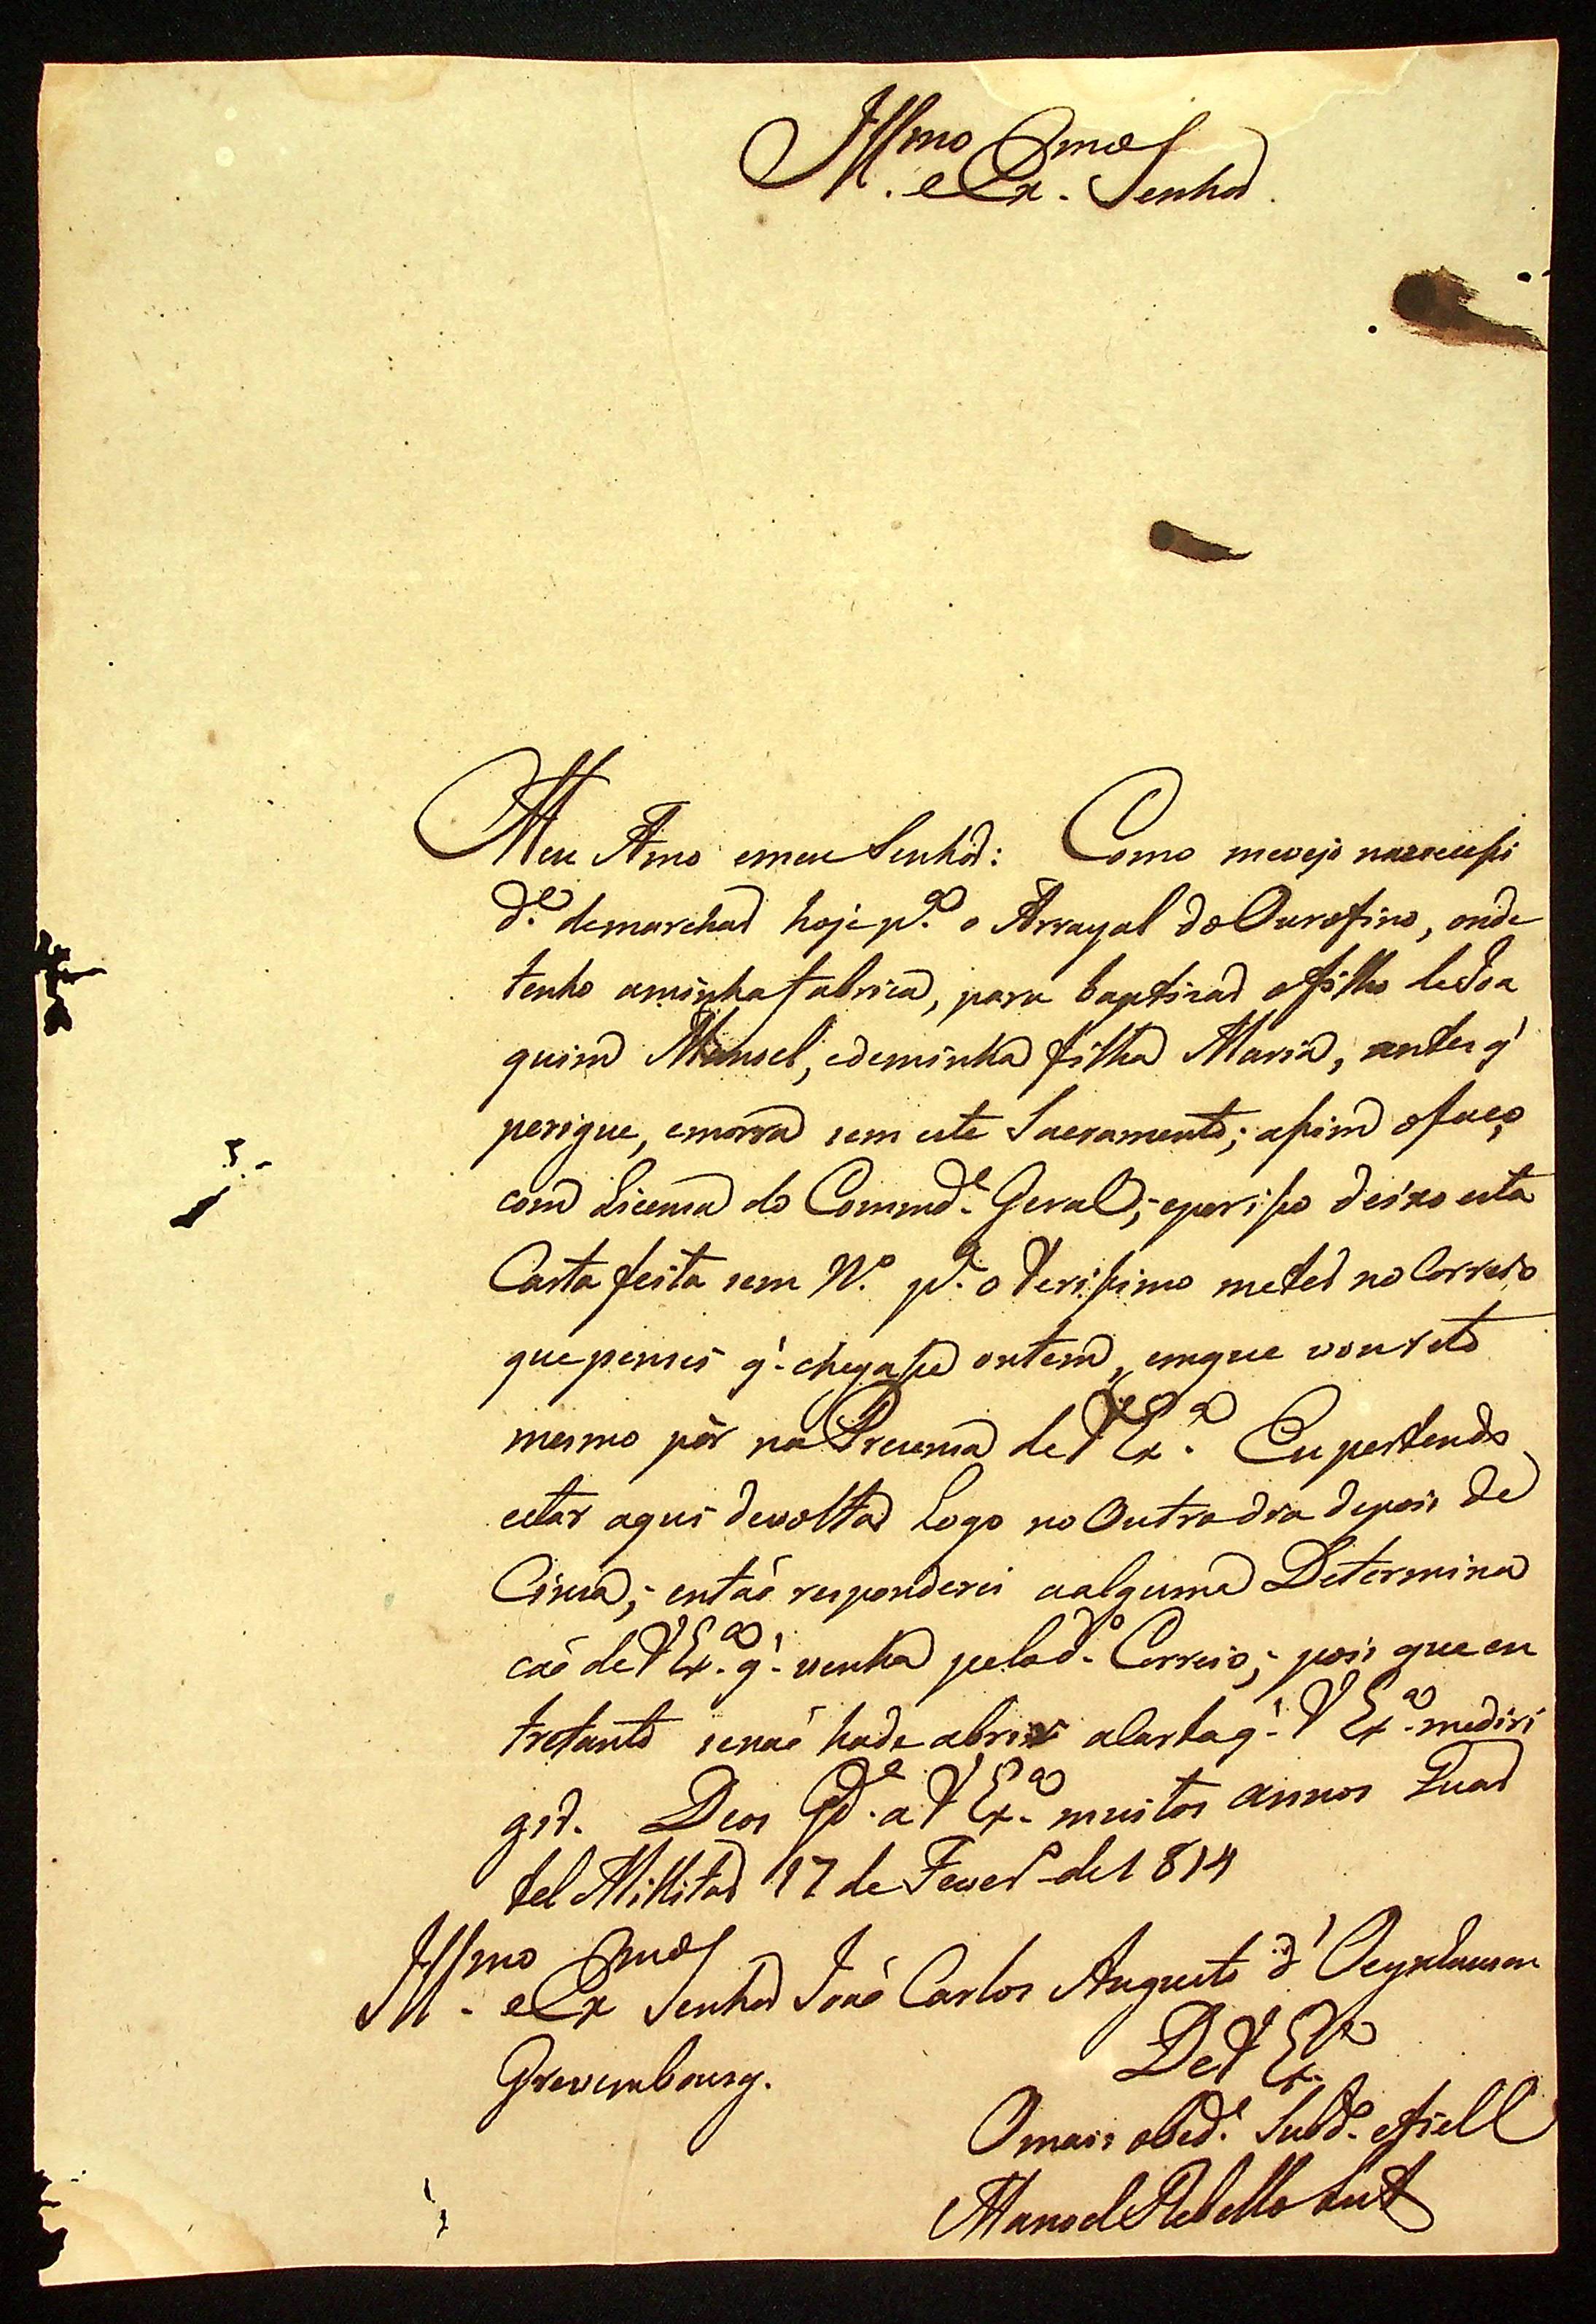 Ill.mo e Ex.mo Senhor.
Meu Amo emeu Senhor: Como mevejo naprecissi
d.e demarchar hoje p.a o Arrayal do Ourofino, onde
tenho aminha fabrica, para baptizar ofilho deJoa
quim Manoel, edeminha filha Maria, antes q'
perigue, emorra sem este Sacramento; assim ofaço
com Licensa do Commd.e Geral; eporisso deixo esta
Carta feita sem N.o p.a o Verissimo meter no Correio
quepenssei q' chegasse ontem, emque
mesmo pôr na Precensa deV Ex.a Eu pertendo
estar aqui devolta Logo no Outro dia depois de
Cinza; entaõ responderei aalguma Determina
caõ deV Ex.a q' venha pelo d.o Correio; pois que en
tretanto senaõ hade abrir aCarta q' V Ex.a mediri
gir. Deos G.de a V Ex.a muitos annos Quar
tel Millitar 17 de Fever.o de 1814
Ill.mo e Ex.mo Senhor Joaõ Carlos Augusto d' Oeynhausen
Grevembourg.
DeV Ex.a
Omais obed.e Subd.o efiell
Manoel Rebello